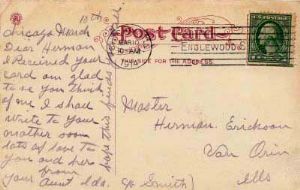 Chicago March 10th
Dear Herman
I Received your
card am glad
to see you think
of me I shall
write to your
mother soon
lots of love to
you and hers
from
your Aunt Ida.
hope this finds
Post Card
MAR 10
10 AM
ENGLEWOOD
THIS SIDE FOR THE ADDRESS
Master
Herman Erickson
Van Orin
Ills
c/o Smith)